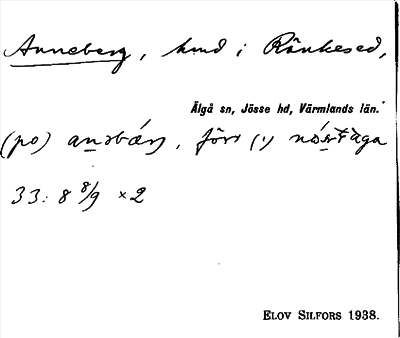 Anneberg, hmd i Rånkesed,
Älgå sn, Jösse hd, Värmlands län.
(po) , förr (i)
33: 8 8/9 × 2
ELOV SILFORS 1938.